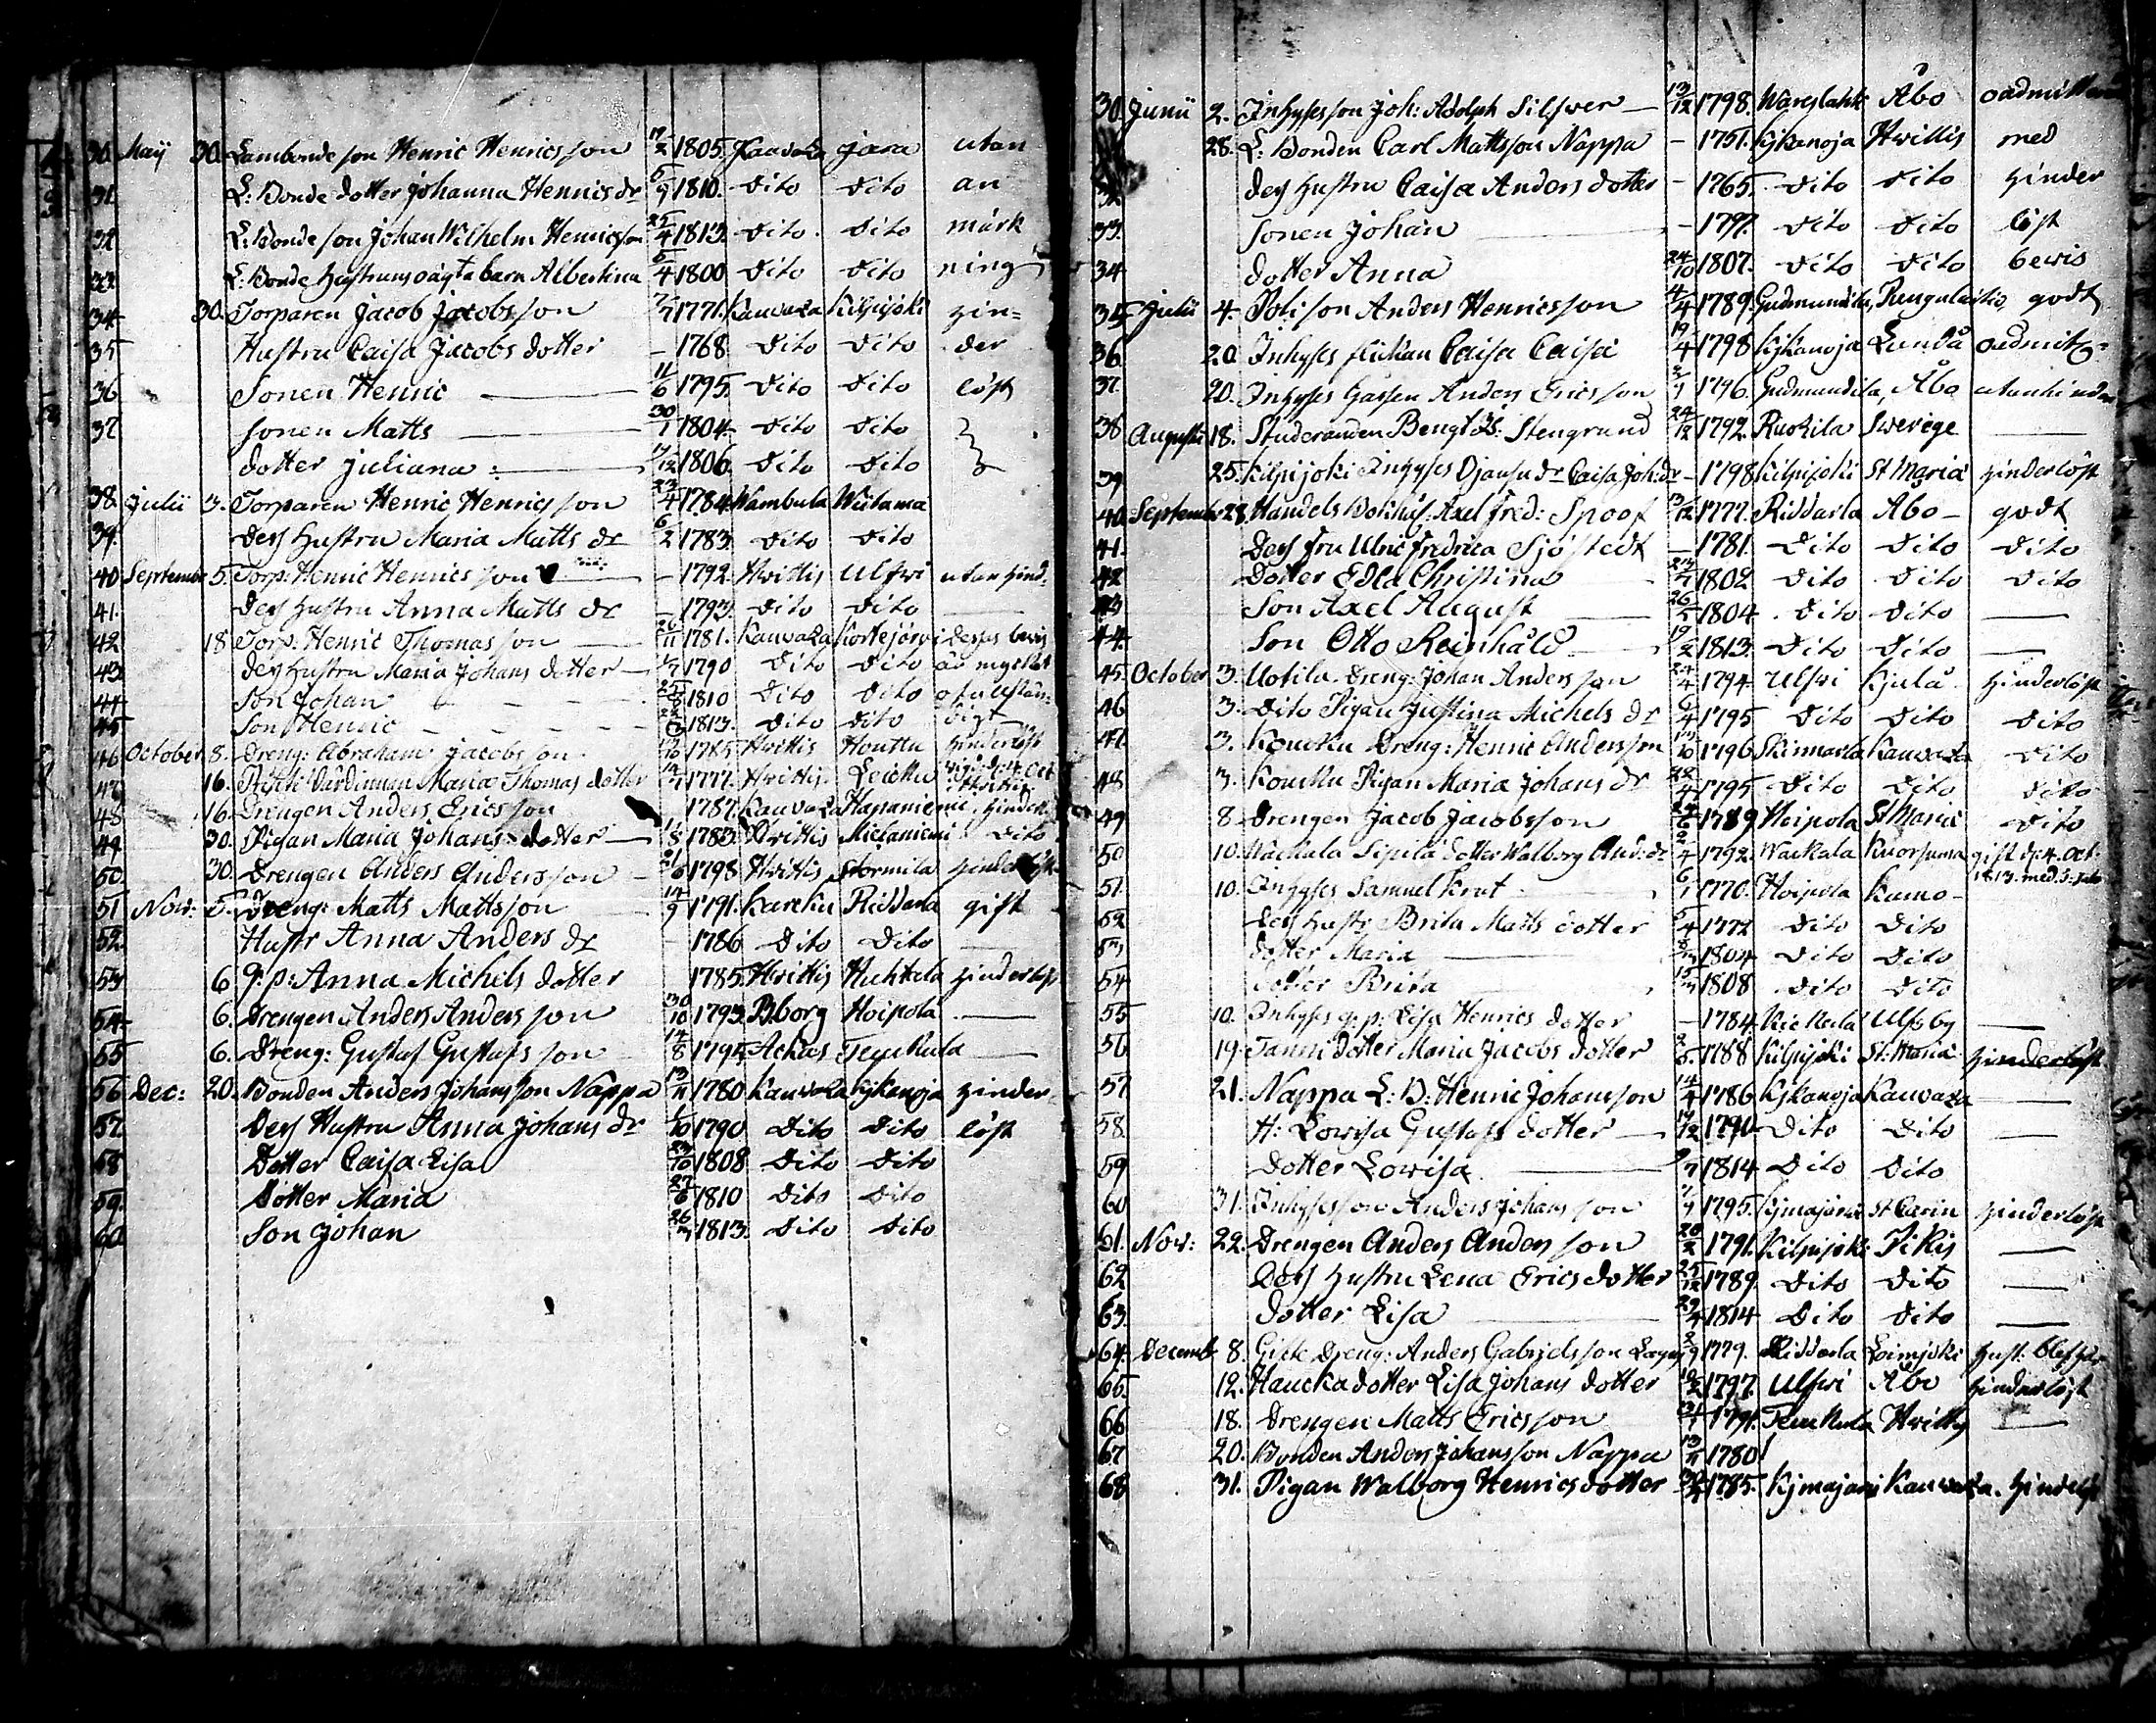 30. Maij 30. Lambonde son Henric Henricsson 17/2 1805. Kauvaza Jara utan
31. L: Bonde dotter Johanna Henrics dr 6/9 1810. Dito Dito an
32 L: Bonde son Johan Wilhelm Henricsson 25/4 1813. Dito Dito märk
33 L: Bonde Hustruns oägta barn Albertina 6/4 1800 Dito Dito ning
34 30. Torparen Jacob Jacobsson 1771. Kauvaza Kilpijoki hin=
35 Hustru Caisa Jacobs dotter – 1768 Dito Dito der
36 Sonen Henric 11/6 1795. Dito Dito löst
37 Sonen Matts 30/1 1804. Dito Dito
dotter Juliana 1806. Dito Dito
38. Julii 3. Torparen Henric Henricsson 23/4 1784. Wambula Widama
39. Dess Hustru Maria Matts dr 6/2 1783. Dito Dito
40 September 5. Torp: Henric Henricsson – 1792. Hvittis Ulfvi utan hind.
41. Dess Hustru Anna Matts dr – 1793. Dito Dito
42 18 Torp: Henric Thomasson 26/11 1781. Kauvaza Kortejärvi dess bevis
43. Dess Hustru Maria Johans dotter 1790 Dito Dito är mycket
44 Son Johan 1810 Dito Dito ofullstän:
45 Son Henric 1813. Dito Dito digt
46 October 8. Dreng: Abraham Jacobsson 1785. Hvittis Houttu hinderlöst
47 16. Maria Thomas dotter 1777. Hvittis Leicku
48 16. Drengen Anders Ericsson 1787. Kauvaza Hapaniemi, hinderl.
49 30. Pigan Maria Johans dotter 1783. Hvittis Mieraniemi Dito
50. 30. Drengen Anders Andersson 1798 Hvittis Stormila hinderlöst
51 Nov: 5. Dreng: Matts Mattsson 14/9 1791. Karcku Riddarla gift
52. Hustr Anna Anders dr – 1786 Dito Dito
53 6 q: p: Anna Michels dotter 1785. Hvittis Huhtala hinderlöst
54 6. Drengen Anders Andersson 30/10 1793. B.borg Hoipola
55 6. Dreng: Gustaf Gustafsson 14/8 1794. Achas Temkula
56 Dec: 20. Bonden Anders Johansson Nappa 13/11 1780 Kauvaza Kjkanoja hinder-
57. Dess Hustru Anna Johans dr 1790 Dito Dito löst
58 Dotter Caisa Lisa 1808 Dito Dito
59. Dotter Maria 27/6 1810 Dito Dito
60 Son Johan 1813. Dito Dito
30. Junii 2. Inhyses son Joh: Adolph Silfver 13/12 1798. Åbo oadmitterad
28. L: Bonden Carl Mattsson Nappa – 1751. Kjkanoja Hvittis med
32 Dess Hustru Caisa Anders dotter – 1765. Dito Dito hinder
33. Sonen Johan – 1797. Dito Dito löst
34 dotter Anna 24/10 1807. Dito Dito bevis
35 Julii 4. Anders Henricsson 4/4 1789. Gudmundila, godt
36. 20. Inhyses flickan Caisa Caisa 19/4 1798 Kjkanoja Lundå oadmitt:
37. 20. Inhyses Gassen Anders Ericsson 1796. Gudmundila, Åbo utan hinder
38 Augusti 18. Studeranden Bengt Stengrund 24/12 1792. Ruokila Swerige
39 25. Kilpijoki Inhyses Caisa Joh: dr – 1798 Kilpijoki St Maria hinderlöst
40. September 28. Handels Bokh: Axel Fred: Spoof 13/12 1777. Riddarla Åbo – godt
41. Dess Fru Ulric Fredrica Sjöstedt – 1781. Dito Dito Dito
42 Dotter Edla Christina 1802 Dito Dito Dito
43 Son Axel August 1804 Dito Dito
44. Son Otto Reinhåld 19/2 1813. Dito Dito
45 October 3. Uotila Dreng: Johan Andersson 24/4 1794 Ulfvi Kjulå hinderlöst
46 3. Dito Pigan Justina Michels dr 1795 Dito Dito Dito
47. 3. Koucku Dreng: Henric Andersson 1796 Skinnarla Kauvaza Dito
48 3. Koucku Pigan Maria Johans dr 1795 Dito Dito Dito
49 8 Drengen Jacob Jacobsson 1789 Hoipola St Maria Dito
50 10. Wackala Sipila dotter Walborg And: dr 1792 Wackala gift d: 4. Oct:
51 10. Inhyses Samuel Krut 6/1 1770. Hoipola Kumo – 1813. med
52 Dess Hustr Brita Matts dotter 1772 Dito Dito
53 dotter Maria 1804 Dito Dito
54 dotter Brita 1808 Dito Dito
55 10. Inhyses q: p: Lisa Henrics dotter – 1784. Ulfsby
56 19. Tanni dotter Maria Jacobs dotter 1788 Kilpijoki St: Maria hinderlöst
57 21. Nappa L: B: Henric Johansson 14/4 1786 Kjkanoja Kauvaza
58. H: Lowisa Gustafs dotter 1790 Dito Dito
59 Dotter Lowisa 1814 Dito Dito
60 31. Inhyses son Anders Johansson 1795. Kjmajärvi St Carin hinderlöst
61. Nov: 22. Drengen Anders Andersson 20/2 1791. Kilpijoki Pikis
62 Dess Hustru Lena Erics dotter 25/12 1789. Dito Dito
63. dotter Lisa 1814 Dito Dito
64 Decemb 8. Gifte Dreng: Anders Gabrielsson 1779. Riddarla Loimjoki
65. 12. Haucka dotter Lisa Johans dotter 1797. Ulfvi Åbo hinderlöst
66 18. Drengen Matts Ericsson 1791. Temkula Hvittis
67 20. Bonden Anders Johansson Nappa 13/11 1780
68 31. Pigan Walborg Henrics dotter 1785. Kjmajärvi Kauvaza. hinderlöst